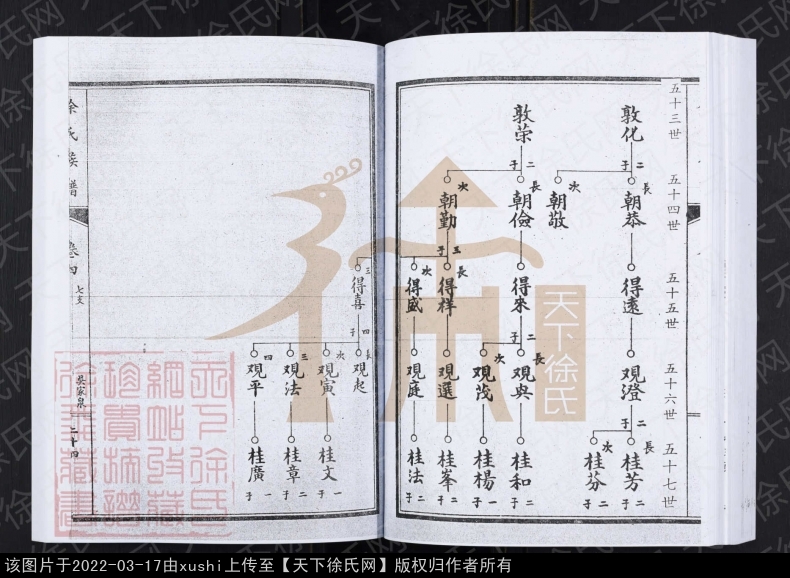 五十三世
五十四世
五十五世
五十六世
五十七世
敦化
二子
長
朝恭
次
朝敬
得遠
观澄
二子
長
桂芳
二子
次
桂分
二子
敦荣
二子
長
朝儉
次
朝勤
得來
二子
長
观與
次
观茂
桂和
二子
桂楊
一子
三子
長
得样
次
得盛
三
得喜
观選
桂峯
二子
观庭
桂法
二子
四子
長
观起
次
观寅
三
观法
四
观平
桂文
一子
桂章
二子
桂廣
一子
徐氏族譜
卷四
七支
吳家泉
二十四
天下徐氏
天下徐氏网
该图片于2022-03-17由xushi上传至【天下徐氏网】版权归作者所有